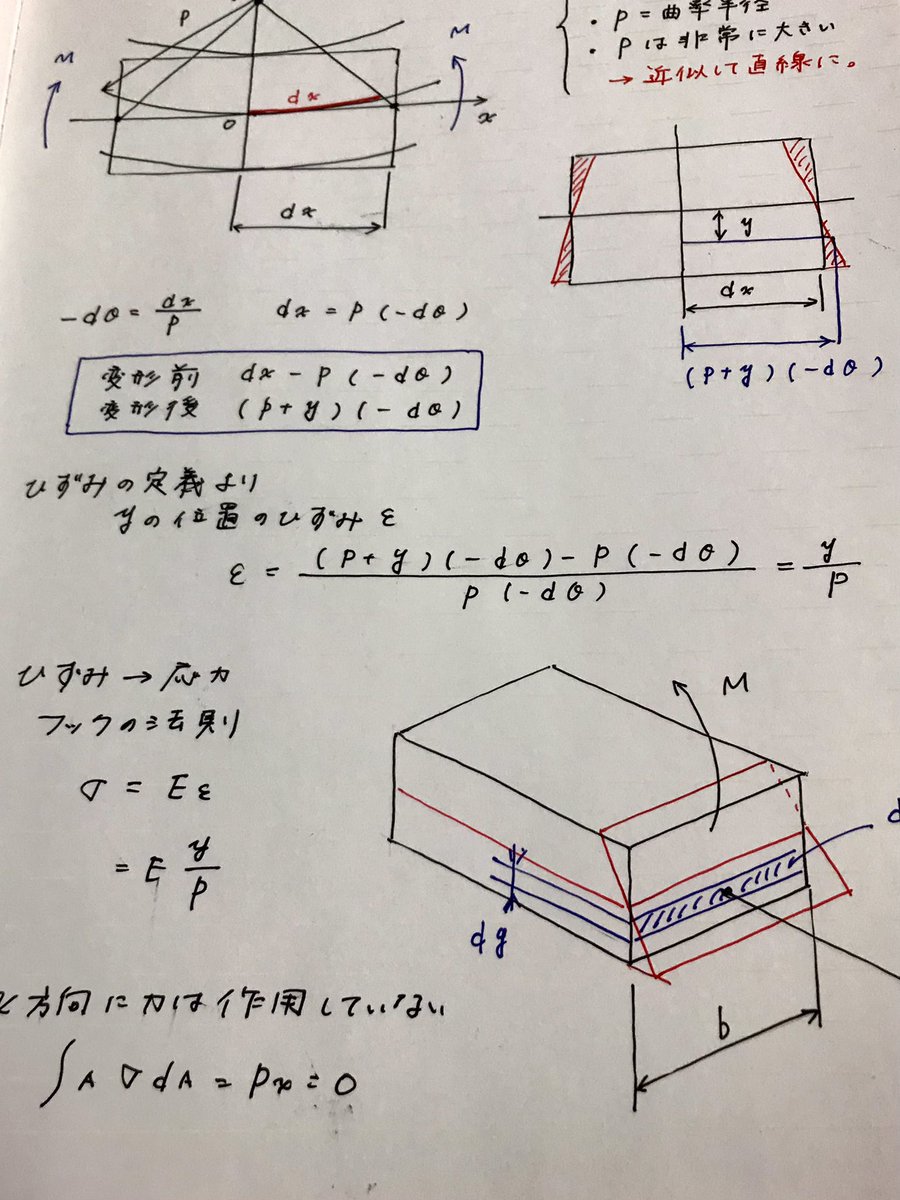 ・ρ = 曲率半径
・ρは非常に大きい
→ 近似して直線に。
ρ
M
M
dx
O
x
dx
y
dx
(ρ+y)(-dθ)
-dθ = dx/ρ dx = ρ(-dθ)
変形前 dx - ρ(-dθ)
変形後 (ρ+y)(-dθ)
ひずみの定義より
yの位置のひずみ ε
ε = (ρ+y)(-dθ)-ρ(-dθ) / ρ(-dθ) = y/ρ
ひずみ→応力
フックの法則り
σ = Eε
= E y/ρ
M
d
dy
b
x方向に力は作用していない
∫A σdA = Px = 0